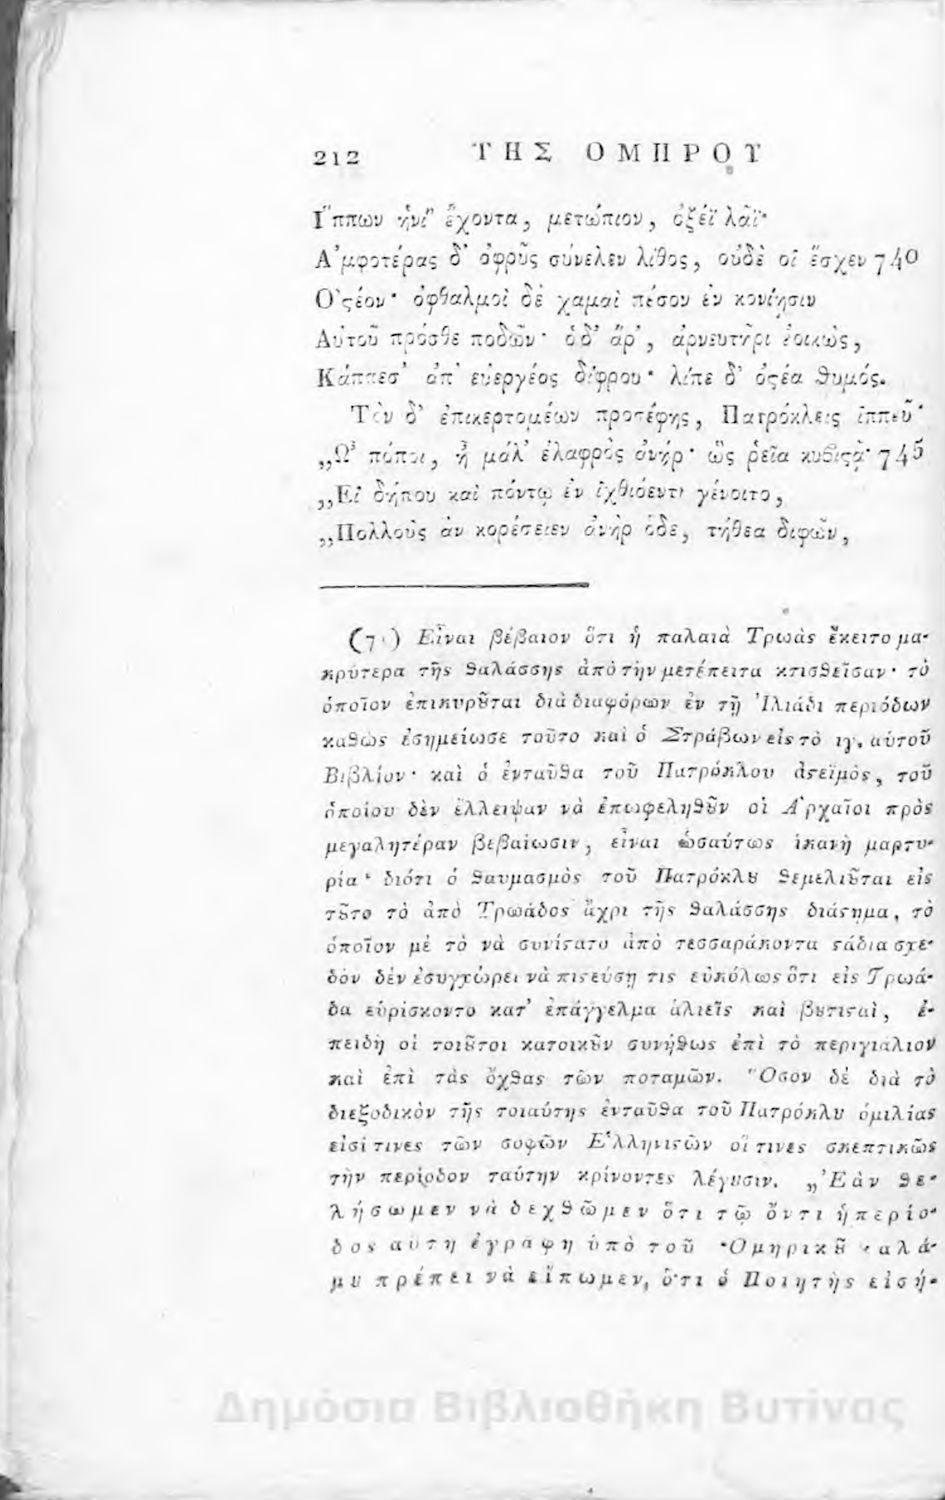 212 ΤΗΣ ΟΜΗΡΟΥ
Ἵππων ἡνί' ἔχοντα, μετώπιον, ὀξέϊ λᾶϊ·
Ἀμφοτέρας δ' ὀφρῦς σύνελεν λίθος, οὐδέ οἱ ἔσχεν 740
Ὀϛέον· ὀφθαλμοὶ δὲ χαμαὶ πέσον ἐν κονίῃσιν
Αὐτοῦ πρόσθε ποδῶν· ὁδ' ἄρ', ἀρνευτῆρι ἐοικὼς,
Κάππεσ' ἀπ' εὐεργέος δίφρου· λίπε δ' ὀϛέα θυμός.
Τὸν δ' ἐπικερτομέων προσέφης, Πατρόκλεις ἱππεῦ·
„Ὢ πόποι, ἦ μάλ' ἐλαφρὸς ἀνήρ· ὡς ῥεῖα κυβιϛᾷ· 745
„Εἰ δήπου καὶ πόντῳ ἐν ἰχθυόεντι γένοιτο,
„Πολλοὺς ἂν κορέσειεν ἀνὴρ ὅδε, τήθεα διφῶν,
Εἶναι βέβαιον ὅτι ἡ παλαιὰ Τρωὰς ἔκειτο μα-
κρύτερα τῆς θαλάσσης ἀπὸ τὴν μετέπειτα κτισθεῖσαν· τὸ
ὁποῖον ἐπικυρȣ͂ται διὰ διαφόρων ἐν τῇ Ἰλιάδι περιόδων
καθὼς ἐσημείωσε τοῦτο καὶ ὁ Στράβων εἰς τὸ ιγ, αὑτοῦ
Βιβλίον· καὶ ὁ ἐνταῦθα τοῦ Πατρόκλου ἀϛεϊμὸς, τοῦ
ὁποίου δὲν ἔλλειψαν νὰ ἐπωφεληθῶν οἱ Ἀρχαῖοι πρὸς
μεγαλητέραν βεβαίωσιν, εἶναι ὡσαύτως ἱκανὴ μαρτυ-
ρία· διότι ὁ θαυμασμὸς τοῦ Πατρόκλȣ θεμελιȣ͂ται εἰς
τȣ͂το τὸ ἀπὸ Τρωάδος ἄχρι τῆς θαλάσσης διάϛημα, τὸ
ὁποῖον μὲ τὸ νὰ συνίϛατο ἀπὸ τεσσαράκοντα ϛάδια σχε-
δὸν δὲν ἐσυγχώρει νὰ πιϛεύσῃ τις εὐκόλως ὅτι εἰς Τρωά-
δα εὑρίσκοντο κατ' ἐπάγγελμα ἁλιεῖς καὶ βȣτιϛαὶ, ἐ-
πειδὴ οἱ τοιȣ͂τοι κατοικȣ͂ν συνήθως ἐπὶ τὸ περιγιάλιον
καὶ ἐπὶ τὰς ὄχθας τῶν ποταμῶν. Ὅσον δὲ διὰ τὸ
διεξοδικὸν τῆς τοιαύτης ἐνταῦθα τοῦ Πατρόκλȣ ὁμιλίας
εἰσί τινες τῶν σοφῶν Ἑλληνιϛῶν οἵ τινες σκεπτικῶς
τὴν περίοδον ταύτην κρίνοντες λέγȣσιν. „Ἐὰν θε-
λήσωμεν νὰ δεχθῶμεν ὅτι τῷ ὄντι ἡ περίο-
δος αὕτη ἐγράφη ὑπὸ τοῦ Ὁμηρικȣ͂ καλά-
μȣ πρέπει νὰ εἴπωμεν, ὅτι ὁ Ποιητὴς εἰσή-
Δημόσια Βιβλιοθήκη Βυτίνας